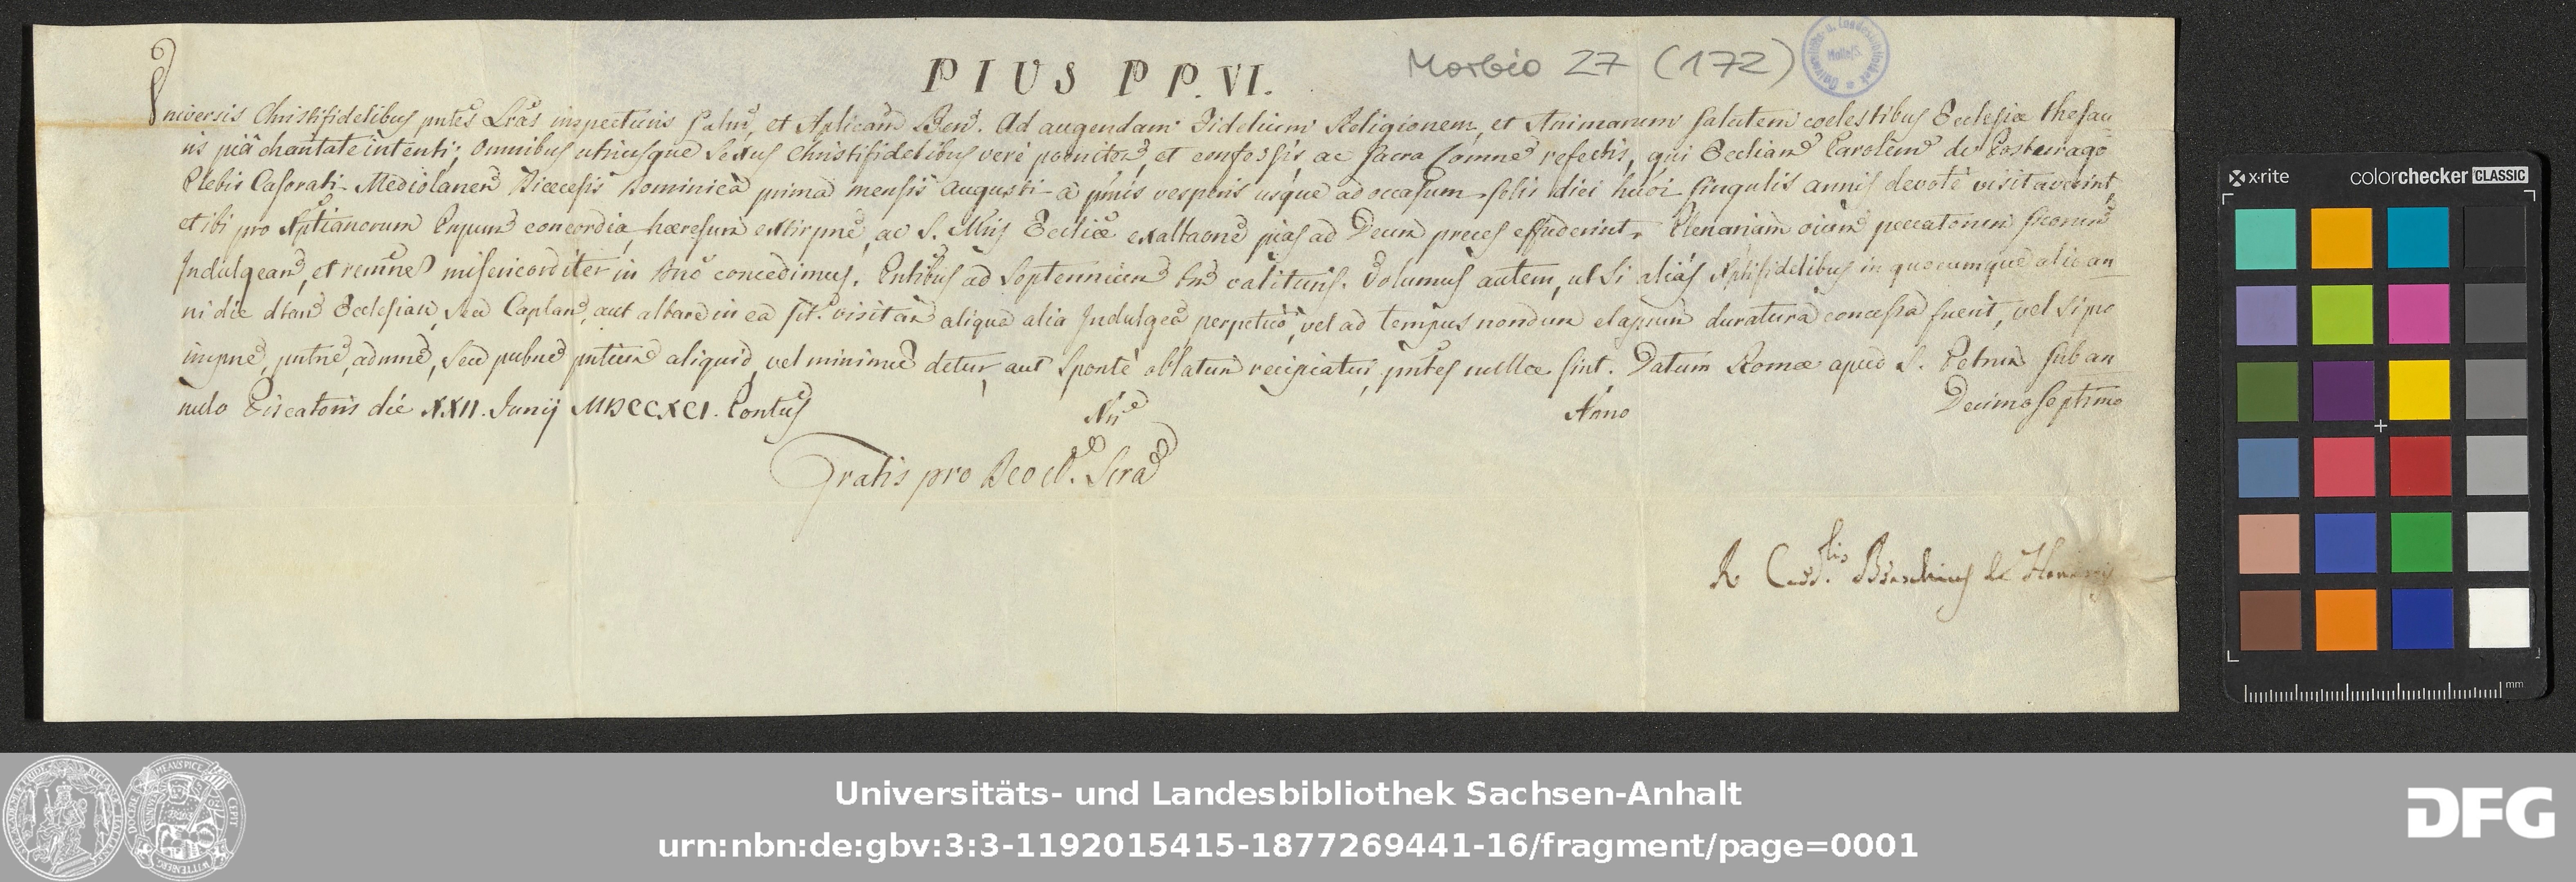 PIUS PP. VI.
Morbio 27 (172)
Universis Christifidelibus pntes Lras inspecturis Salm, et Aplicam Ben. Ad augendam Fidelium Religionem, et Animarum salutem coelestibus Ecclesiæ thesau
ris piâ charitate intenti; Omnibus utriusque Sexus Christifidelibus verè poeniten, et confessis ac Sacra Comne refectis, qui Eccliam Parolem de
Plebis Casorati Mediolanen Diœcesis Dominica prima mensis Augusti à pmis vesperis usque ad occasum solis diei hmoi singulis annis devotè visitaverint,
et ibi pro Xptianorum Prpum concordia, hæresum extirpne, ac S. Mris Eccliæ exaltaone pias ad Deum preces effuderint, Plenariam oium peccatorum suorum
Indulgeam, et remnem misericorditer in Dno concedimus. Pntibus ad Septennium tm valituris. Volumus autem, ut si aliàs Xptifidelibus in quocumque alio an
ni die dtam Ecclesiam, seu Caplam, aut altare in ea sit. visitan aliqua alia Indulgea perpetuò, vel ad tempus nondum elapsum duratura concessa fuerit, vel si pro
impne, pntne, admne, seu pubne pntium aliquid, vel minimum detur, aut Spontè oblatum recipiatur, pntes nullæ sint. Datum Romæ apud S. Petrum sub an
nulo Piscatoris die XXII. Junij MDCCXCI. Pontus Nri Anno Decimoseptimo
Gratis pro Deo et Scra
R. Card.lis Braschius de Honestis
x-rite colorchecker CLASSIC
mm
Universitäts- und Landesbibliothek Sachsen-Anhalt
urn:nbn:de:gbv:3:3-1192015415-1877269441-16/fragment/page=0001
DFG